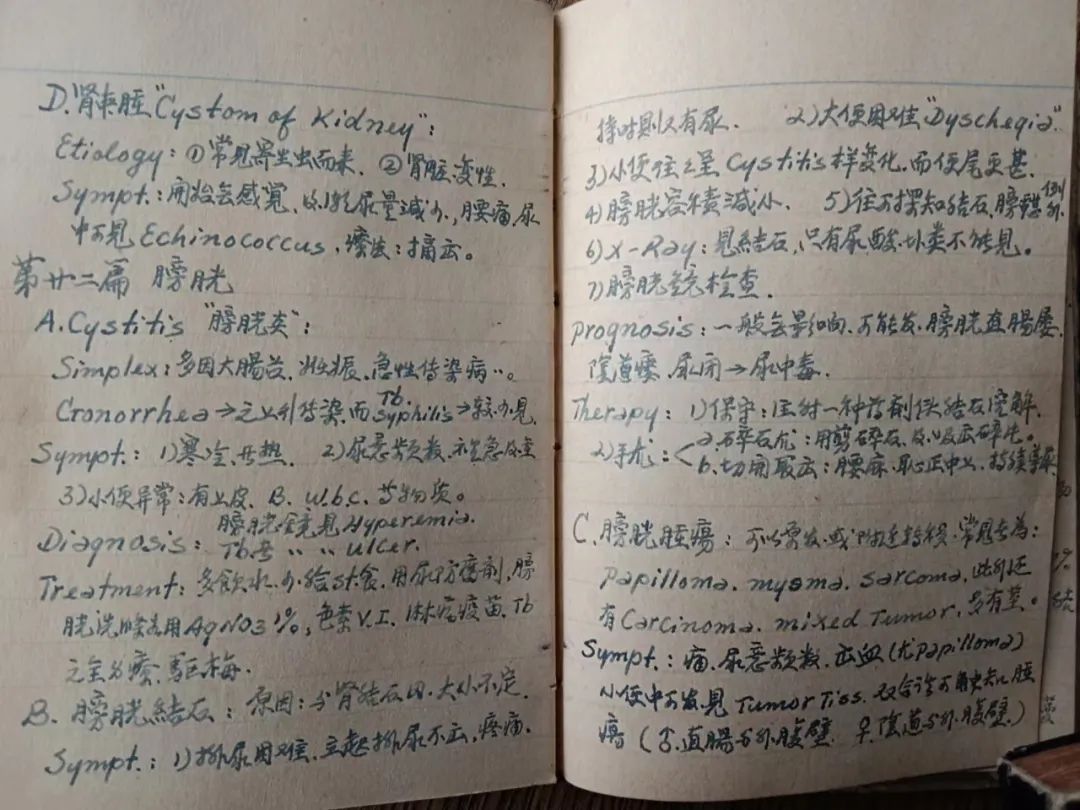 D.肾囊腫"Cystom of Kidney":
Etiology: ①常見寄生虫而来. ②肾脏变性.
Sympt.: 開始无感覚、以後尿量減少,腰痛,尿
中可見Echinococcus,療法:摘去。
第廿二篇 膀胱
A.Cystitis "膀胱炎":
Simplex:多因大腸菌、急性传染病…。
Gonorrhea→之上行传染,而Tb. Syphilis→較少見
Sympt.: 1)寒冷、升热. 2)尿意频数,
3)小便异常:有上皮、B. W.b.c. 等物质。
Diagnosis: 膀胱鏡見Hyperemia.
Tb者 〃 〃 ulcer.
Treatment:多飲水、少給st食,用尿防腐劑,膀
胱洗滌若用AgNO3 1%,色素V.I. 淋病疫苗,Tb
之全身療,駆梅.
B. 膀胱結石: 原因:与肾结石同,大小不定.
Sympt.: 1)排尿困难,立起排尿不出,疼痛.
時則又有尿. 2)大便困难"Dyschegia".
3)小便往之呈Cystitis样变化,而便尾更甚.
4)膀胱容積減小. 5)往可探知结石,
6)X-Ray:見結石,只有尿酸塩类不能見。
7)膀胱鏡检查.
Prognosis:一般无影响,可能发,膀胱直腸瘘,
陰道瘘、尿闭→尿中毒.
Therapy: 1)保守:压射一种药剂使结石溶解.
2)手尤: a.碎石尤:用剪碎石,及吸出碎片。
b.切開取出:腰麻,耻上正中,持续導尿
C.膀胱腫瘍:可以原发,或附近转移,常見者為:
Papilloma. myoma. sarcoma,此外还
有Carcinoma. mixed Tumor,
Sympt.:痛、尿意频数、出血(尤Papilloma)
小便中可发見Tumor Tiss. 双合诊可触知腫
瘍(♂直腸与外腹壁. ♀陰道与外腹壁.)